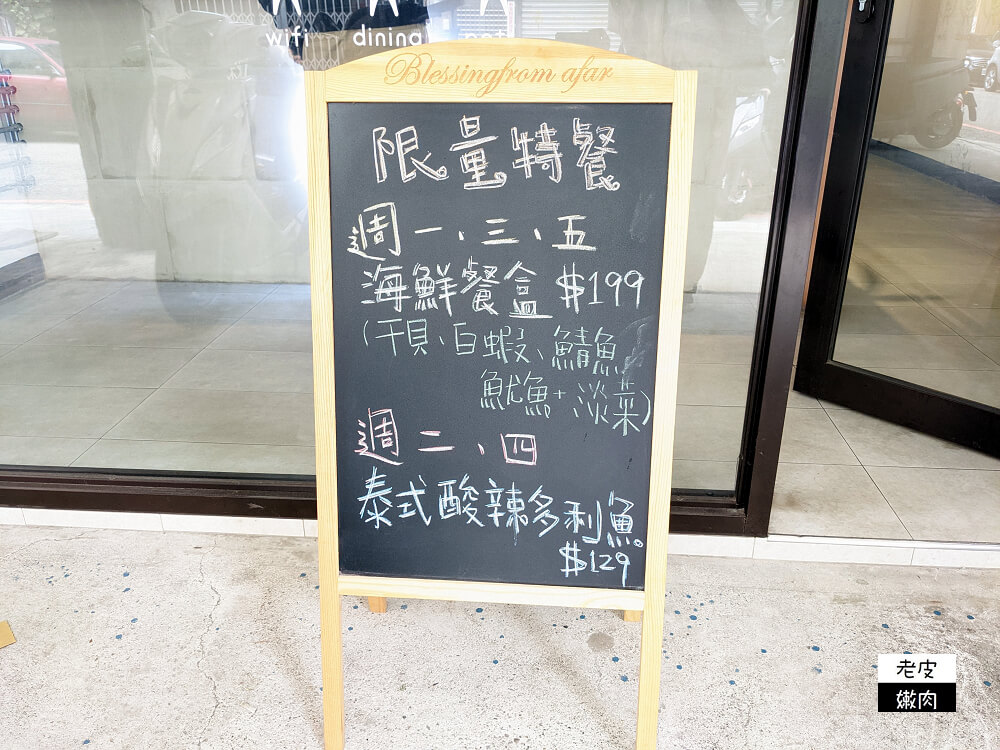 wifi dining
Blessing from afar
限量特餐
週一、三、五
海鮮餐盒 $199
(干貝、白蝦、鯖魚
魷魚+淡菜)
週二、四
泰式酸辣多利魚
$129
老皮
嫩肉